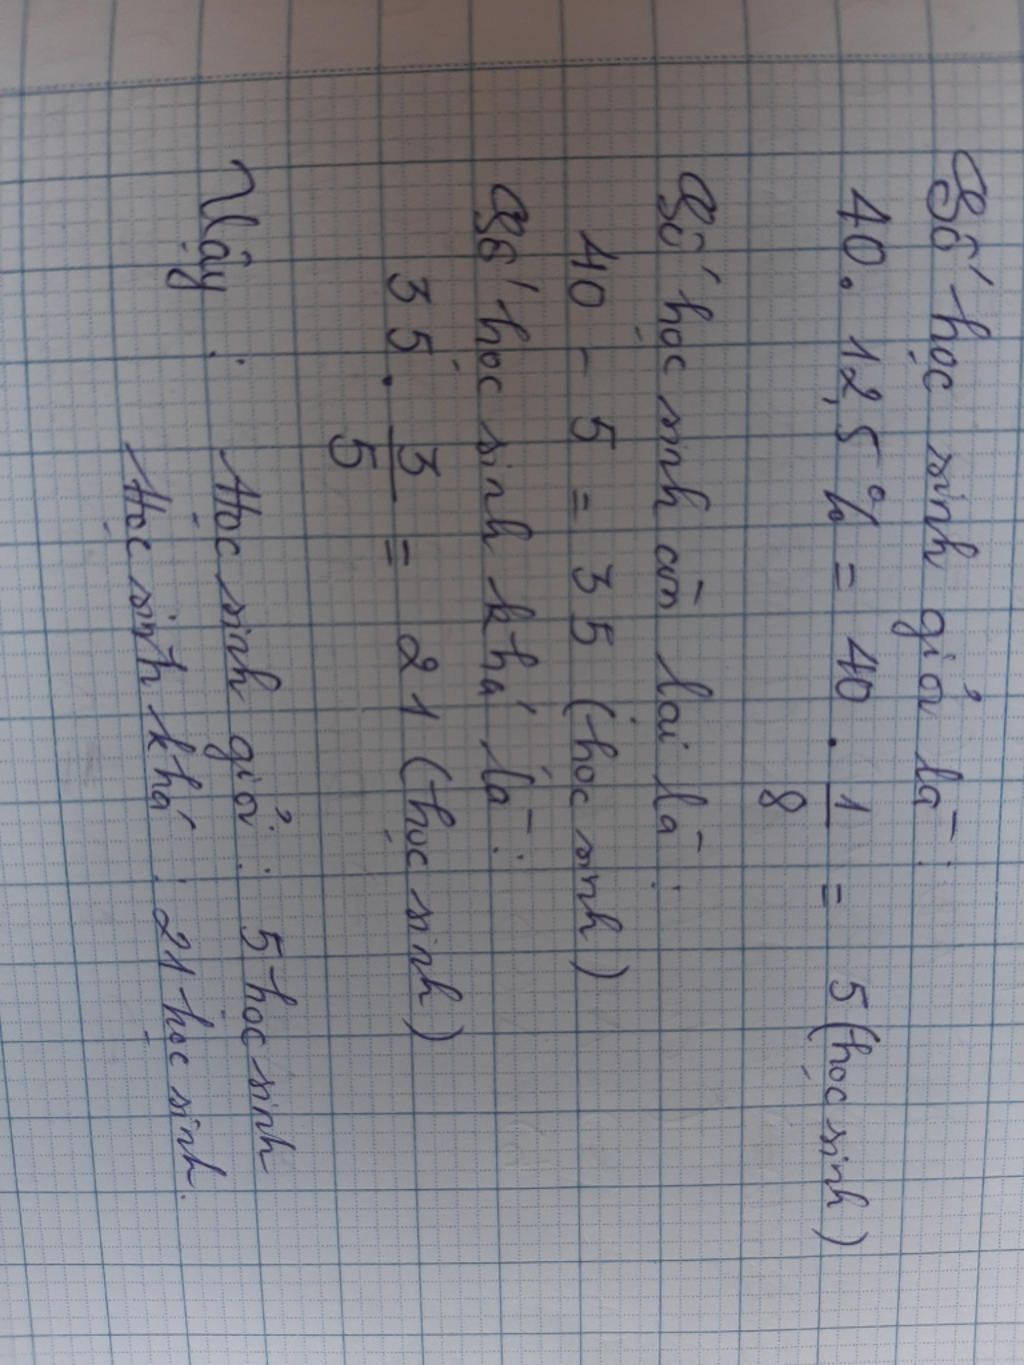 Số học sinh giỏi là :
40 . 12,5 % = 40 . 1/8 = 5 (học sinh)
Số học sinh còn lại là :
40 - 5 = 35 (học sinh)
Số học sinh khá là :
35 . 3/5 = 21 (học sinh)
Vậy : Học sinh giỏi : 5 học sinh
Học sinh khá : 21 học sinh.